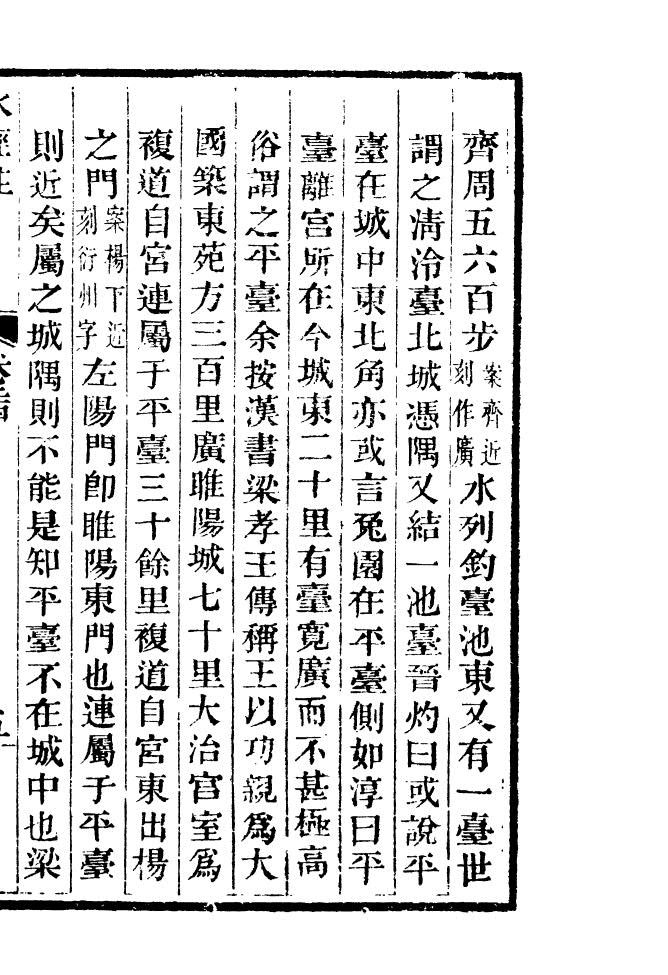 齊周五六百步案齊近刻作廣水列釣臺池東又有一臺世
謂之清泠臺北城憑隅又結一池臺晉灼曰或說平
臺在城中東北角亦或言兎園在平臺側如淳曰平
臺離宮所在今城東二十里有臺寬廣而不甚極高
俗謂之平臺余按漢書梁孝王傳稱王以功親爲大
國築東苑方三百里廣睢陽城七十里大治宮室爲
複道自宮連屬于平臺三十餘里複道自宮東出楊
之門案楊下近刻衍州字左陽門卽睢陽東門也連屬于平臺
則近矣屬之城隅則不能是知平臺不在城中也梁
水經注